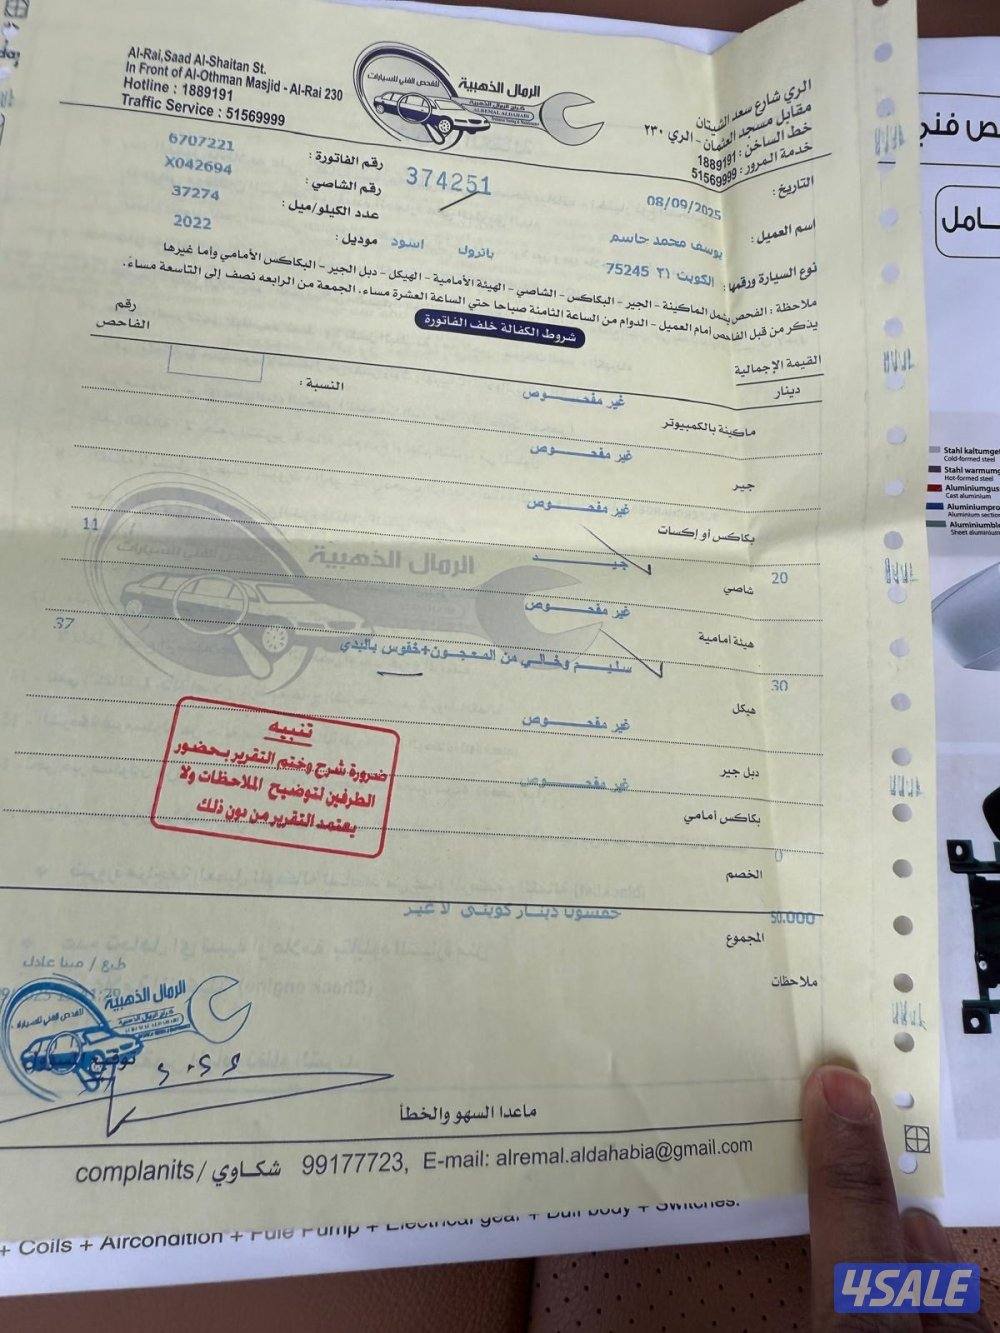 Al-Rai,Saad Al-Shaitan St.
In Front of Al-Othman Masjid - Al-Rai 230
Hotline : 1889191
Traffic Service : 51569999
الرمال الذهبية
للفحص الفني للسيارات
كراج الرمال الذهبية
ALREMAL ALDAHABI
الري شارع سعد الشيتان
مقابل مسجد العثمان - الري ٢٣٠
خط الساخن : 1889191
خدمة المرور : 51569999
التاريخ : 08/09/2025
374251
رقم الفاتورة : 6707221
اسم العميل : يوسف محمد جاسم
رقم الشاصي : X042694
نوع السيارة ورقمها : الكويت ٢١ 75245
بانرول اسود
عدد الكيلو/ميل : 37274
موديل : 2022
ملاحظة : الفحص يشمل الماكينة - الجير - البكاكس - الشاصي - الهيئة الأمامية - الهيكل - دبل الجير - البكاكس الأمامي وأما غيرها
يذكر من قبل الفاحص أمام العميل - الدوام من الساعة الثامنة صباحا حتي الساعة العشرة مساء. الجمعة من الرابعه نصف إلى التاسعة مساءً.
شروط الكفالة خلف الفاتورة
القيمة الإجمالية
دينار
رقم
الفاحص
ماكينة بالكمبيوتر غير مفحوص النسبة :
جير غير مفحوص
بكاكس أو إكسات غير مفحوص
20 شاصي جيد 11
هيئة أمامية غير مفحوص
30 هيكل سليم وخالي من المعجون+خفوس بالبدي 37
دبل جير غير مفحوص
بكاكس أمامي غير مفحوص
0 الخصم
50.000 المجموع خمسون دينار كويتي لا غير
ملاحظات
تنبيه
ضرورة شرح وختم التقرير بحضور
الطرفين لتوضيح الملاحظات ولا
يعتمد التقرير من دون ذلك
طبع / مينا عادل
الرمال الذهبية
للفحص الفني للسيارات
ماعدا السهو والخطأ
complanits / شكاوي 99177723, E-mail: alremal.aldahabia@gmail.com
+ Coils + Aircondition + Fule Pump + Electrical gear + Bull body + Switches.
ص فني
امل
Stahl kaltumgef
Cold-formed steel
Stahl warmumg
Hot-formed steel
Aluminiumgus
Cast aluminium
Aluminiumpro
Aluminium section
Aluminiumble
Sheet aluminium
4SALE